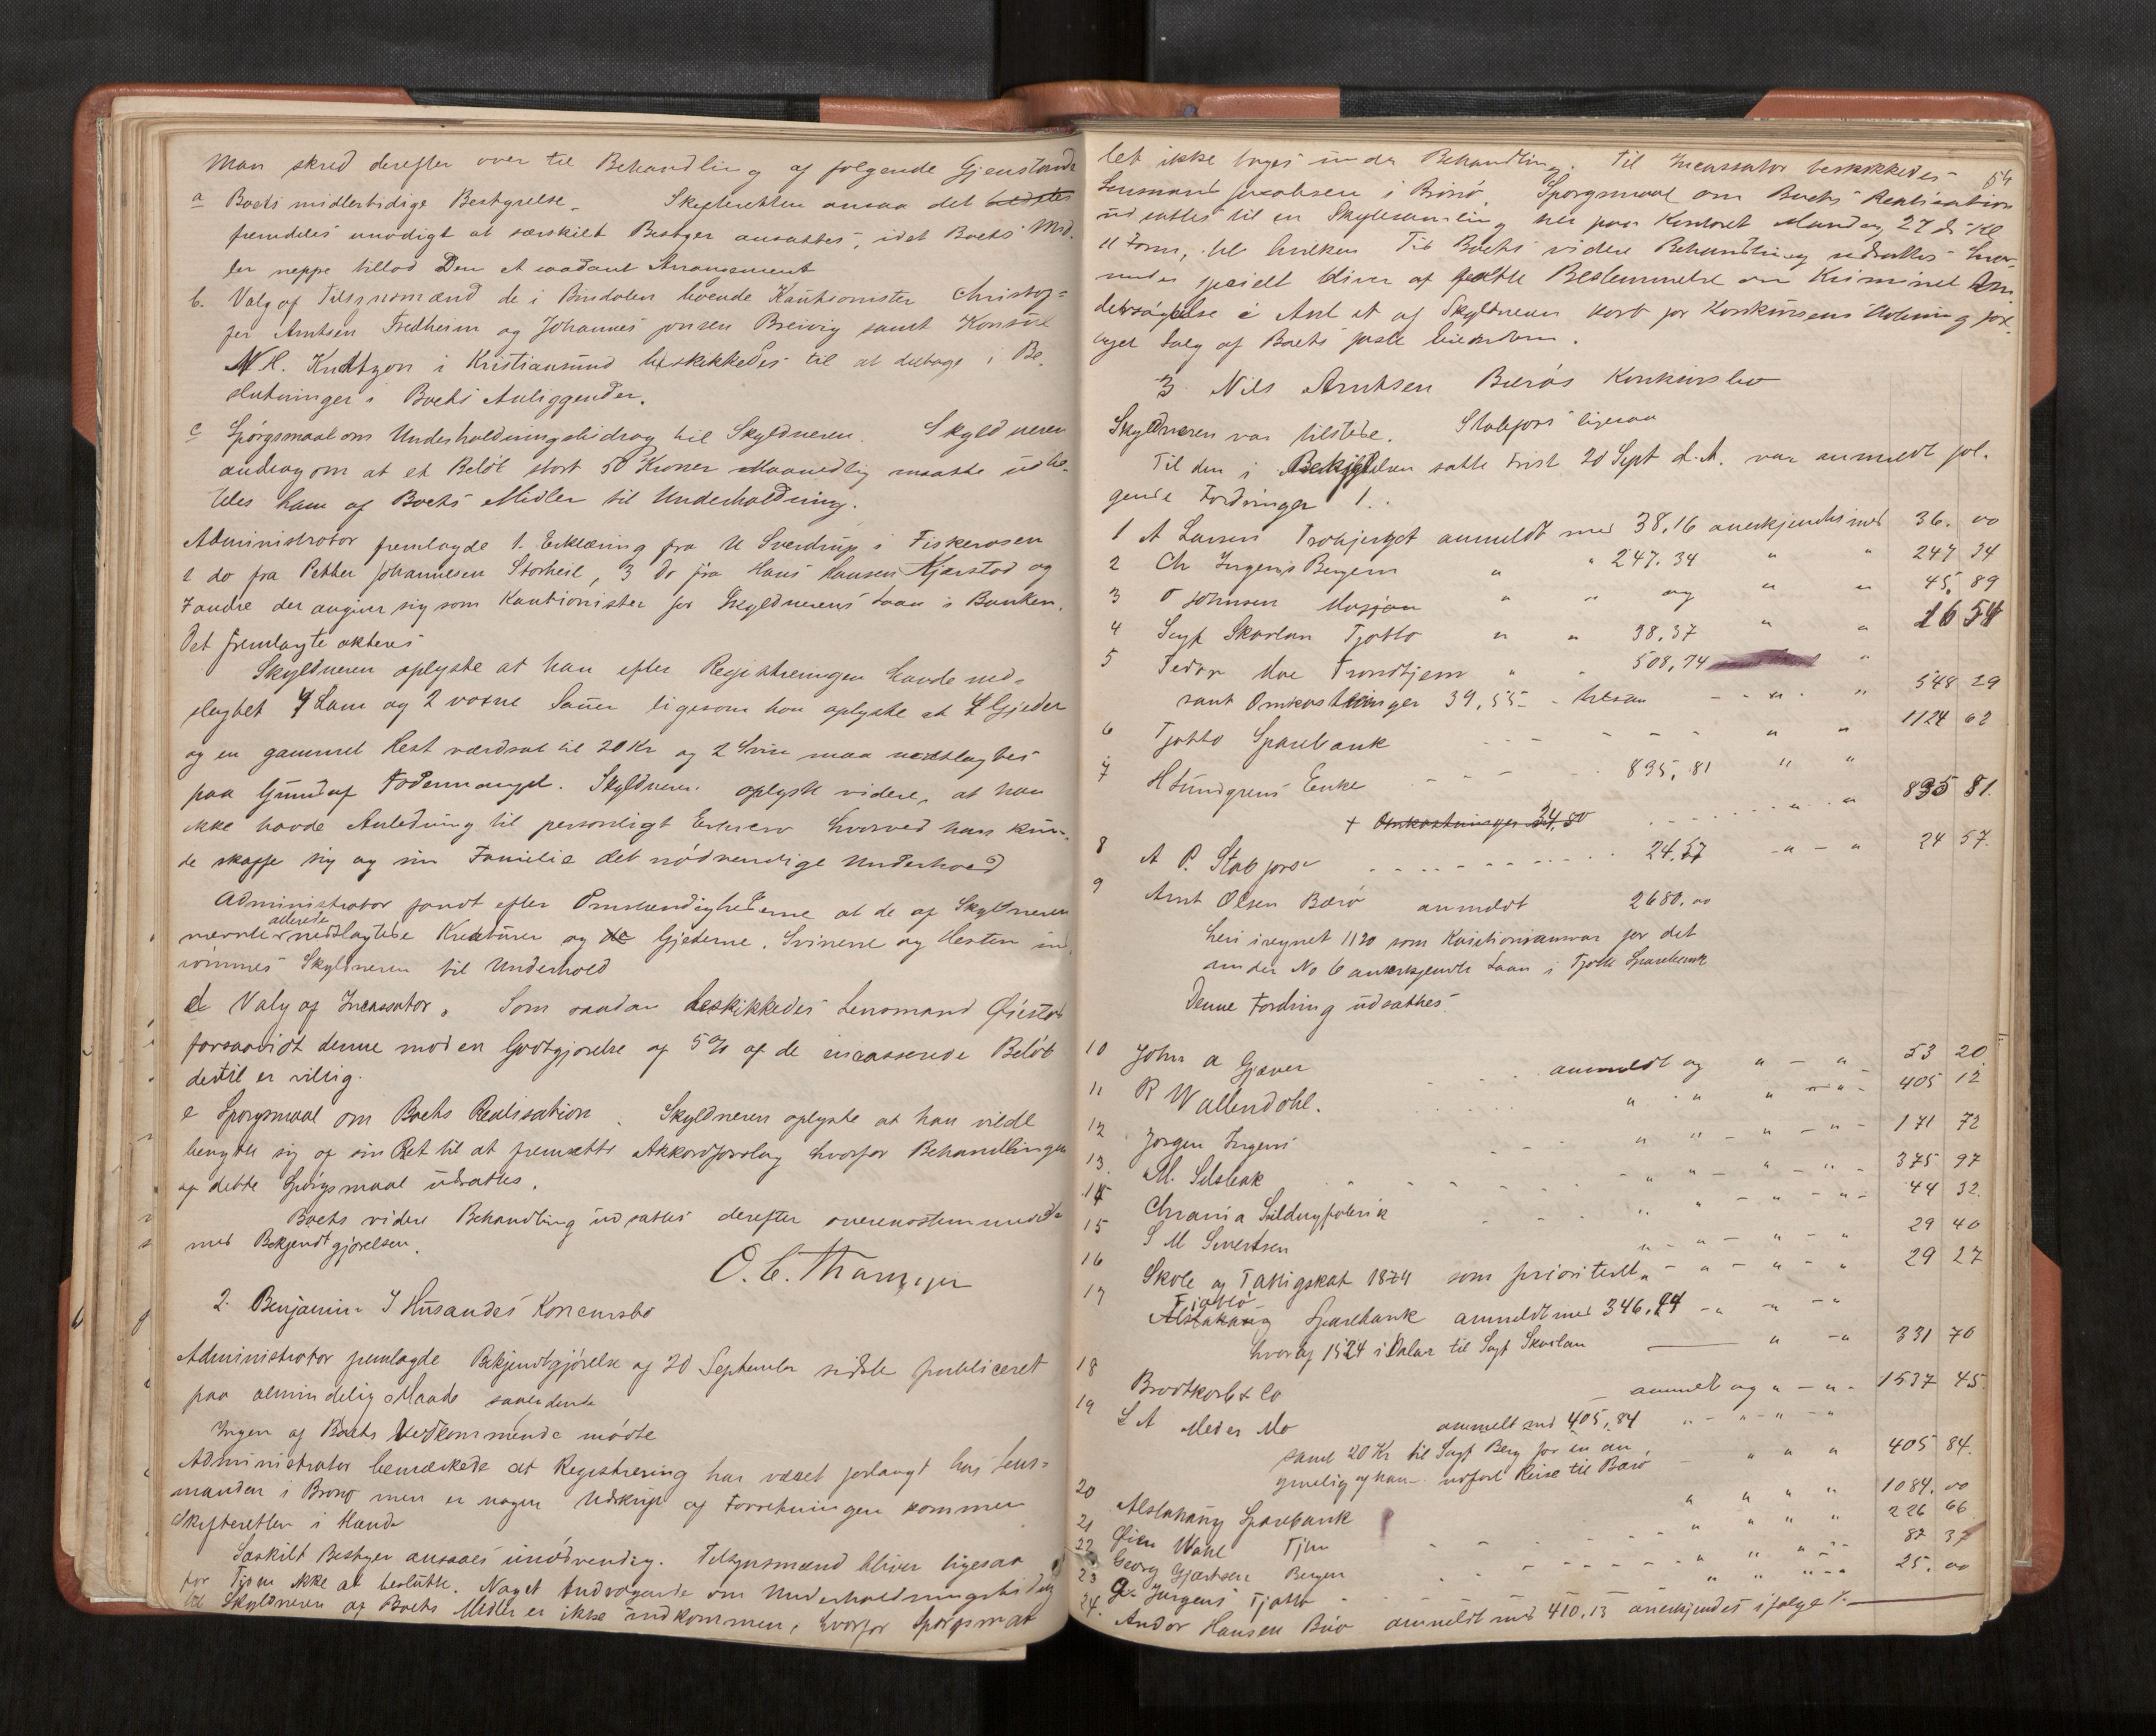 Man skred derefter over til Behandling af følgende Gjenstande
a Boets midlertidige Bestyrelse. Skifteretten ansaa det
fremdeles unødigt at særskilt Bestyrer ansattes, idet Boets Mid-
ler neppe tillod Den et saadant Arrangement
b. Valg af Tilsynsmænd de i Bindalen boende Kautionister Christof-
fer Arntsen Fredheim og Johannes Jonsen Breivig samt Konsul
N. H. Knudtzon i Kristiansund beskikkedes til at deltage i Be-
slutninger i Boets Anliggender.
c Spørgsmaal om Underholdningsbidrag til Skyldneren. Skyldneren
androg om at et Beløb stort 50 Kroner Maanedlig maatte udbe-
tales ham af Boets Midler til Underholdning.
Administrator fremlagde 1. Erklæring fra U Sverdrup i Fiskerosen
2 do fra Petter Johannesen Storheil, 3 do fra Hans Hansen Kjærstad og
7 andre der angiver sig som Kautionister for Skyldnerens Laan i Banken.
Det fremlagte akteres
Skyldneren oplyste at han efter Registreringen havde ned-
slagtet 4 Lam og 2 voxne Sauer ligesom han oplyste at 4 Gjeder
og en gammel Hest værdsat til 20 Kr og 2 Svin maa nedslagtes
paa Grund af Fodermangel. Skyldneren oplyste videre, at han
ikke havde Anledning til personligt Erhverv hvorved han kun-
de skaffe sig og sin Familie det nødvendige Underhold
Administrator fandt efter Omstændighederne at de af Skyldneren
nævnte allerede nedslagtede Kreaturer og de Gjederne, Svinene og Hesten ind-
rømmes Skyldneren til Underhold
d Valg af Incassator. Som saadan beskikkedes Lensmand Øiestad
forsaavidt denne mod en Godtgjørelse af 5% af de incasserede Beløb
dertil er villig.
e Spørgsmaal om Boets Realisation. Skyldneren oplyste at han vilde
benytte sig af sin Ret til at fremsætte Akkordforslag hvorfor Behandlingen
af dette Spørgsmaal udsattes.
Boets videre Behandling udsattes derefter overensstemmende
med Bekjendtgjørelsen.
O. C. Thams
2. Benjamin J Husandes Konkursbo
Administrator fremlagde Bekjendtgjørelse af 20 September sidste publiceret
paa almindelig Maade saalydende
Ingen af Boets Vedkommende mødte
Administrator bemærkede at Registrering har været forlangt hos Lens-
manden i Brønø men er nogen Udskrift af Forretningen kommen
Skifteretten i Hænde
Særskilt Bestyrer ansaaes unødvendig. Tilsynsmænd bliver ligesaa
for Tiden ikke at beslutte. Noget Andragende om Underholdningsbidrag
til Skyldneren af Boets Midler er ikke indkommen, hvorfor Spørgsmaa-
54
let ikke toges under Behandling. Til Incassator beskikkedes
Lensmand Jacobsen i Brønø. Spørgsmaal om Boets Realisation
udsattes til en Skiftesamling her paa Kontoret Mandag 27 ds Kl
11 Form, til hvilken Tid Boets videre Behandling udsattes hvor-
under specielt bliver at fatte Bestemmelse om Kriminel Un-
dersøgelse i Anl. et af Skyldneren kort for Konkursens Aabning fore-
taget Salg af Boets faste Eiendom.
3 Nils Arntsen Bærøs Konkursbo
Skyldneren var tilstede. Stabfors ligesaa
Til den i satte Frist 20 Sept d. A. var anmeldt føl-
gende Fordringer 1.
1 A Larsen anmeldt med 38,16 anerkjendes med 36. 00
2 Ch Irgens Bergen " " 247.34 " " 247 34
3 O Johnsen Mosjøen " " og " " 45. 89
4 Sagf Skavlan Tjøtta " " 38,37 " " 16 54
5 Fedor Moe Trondhjem " " 508,74 "
samt Omkostninger 39,55 - tilsam " " 548 29
6 Tjøtta Sparebank " " 1124 62
7 H Lundgrens Enke 895,81 " "
+ Omkostninger 34,80 " " 895 81.
8 A P. Stabfors 24.57 " " 24 57.
9 Arnt Olsen Bærø anmeldt 2680.00
heri iregnet 1120 som Kautionsansvar for det
under No 6 anerkjendte Laan i Tjøtta Sparebank
Denne Fordring udsattes.
10 John A Gjæver anmeldt og " " 53 20
11 R Wallendahl. " " " " 405 12
12 Jørgen Irgens " " " " 171 72
13. M. Selsbak " " " " 375 97
14 Chrania Sildoljefabrik " " " " 44 32.
15 S M Sivertsen " " " " 29 40
16 Skole og Fattigskat 1874 som prioriteret " " " " 29 27
17 Tjøttø
Alstahaug Sparebank anmeldt med 346.94 " " "
hvoraf 15.24 i Salær til Sagf Skavlan " " 331 70
18 Brodtkorb & Co anmeldt og " " 1537 45.
19 L A Meder Mo anmeldt med 405,84 " " "
samt 20 Kr til Sagf Berg for en an-
givelig af ham udført Reise til Bærø " " " 405 84.
20 Alstahaug Sparebank " " " " 1084. 00
21 Wahl Tjøtt " " " " 226 66
22 Georg Gjertsen Bergen " " " " 87 37
23 G. Jurgens Tjøtta " " " " 25. 00
24. Andor Hansen Brø anmeldt med 410.13 anerkjendes ifølge 1.